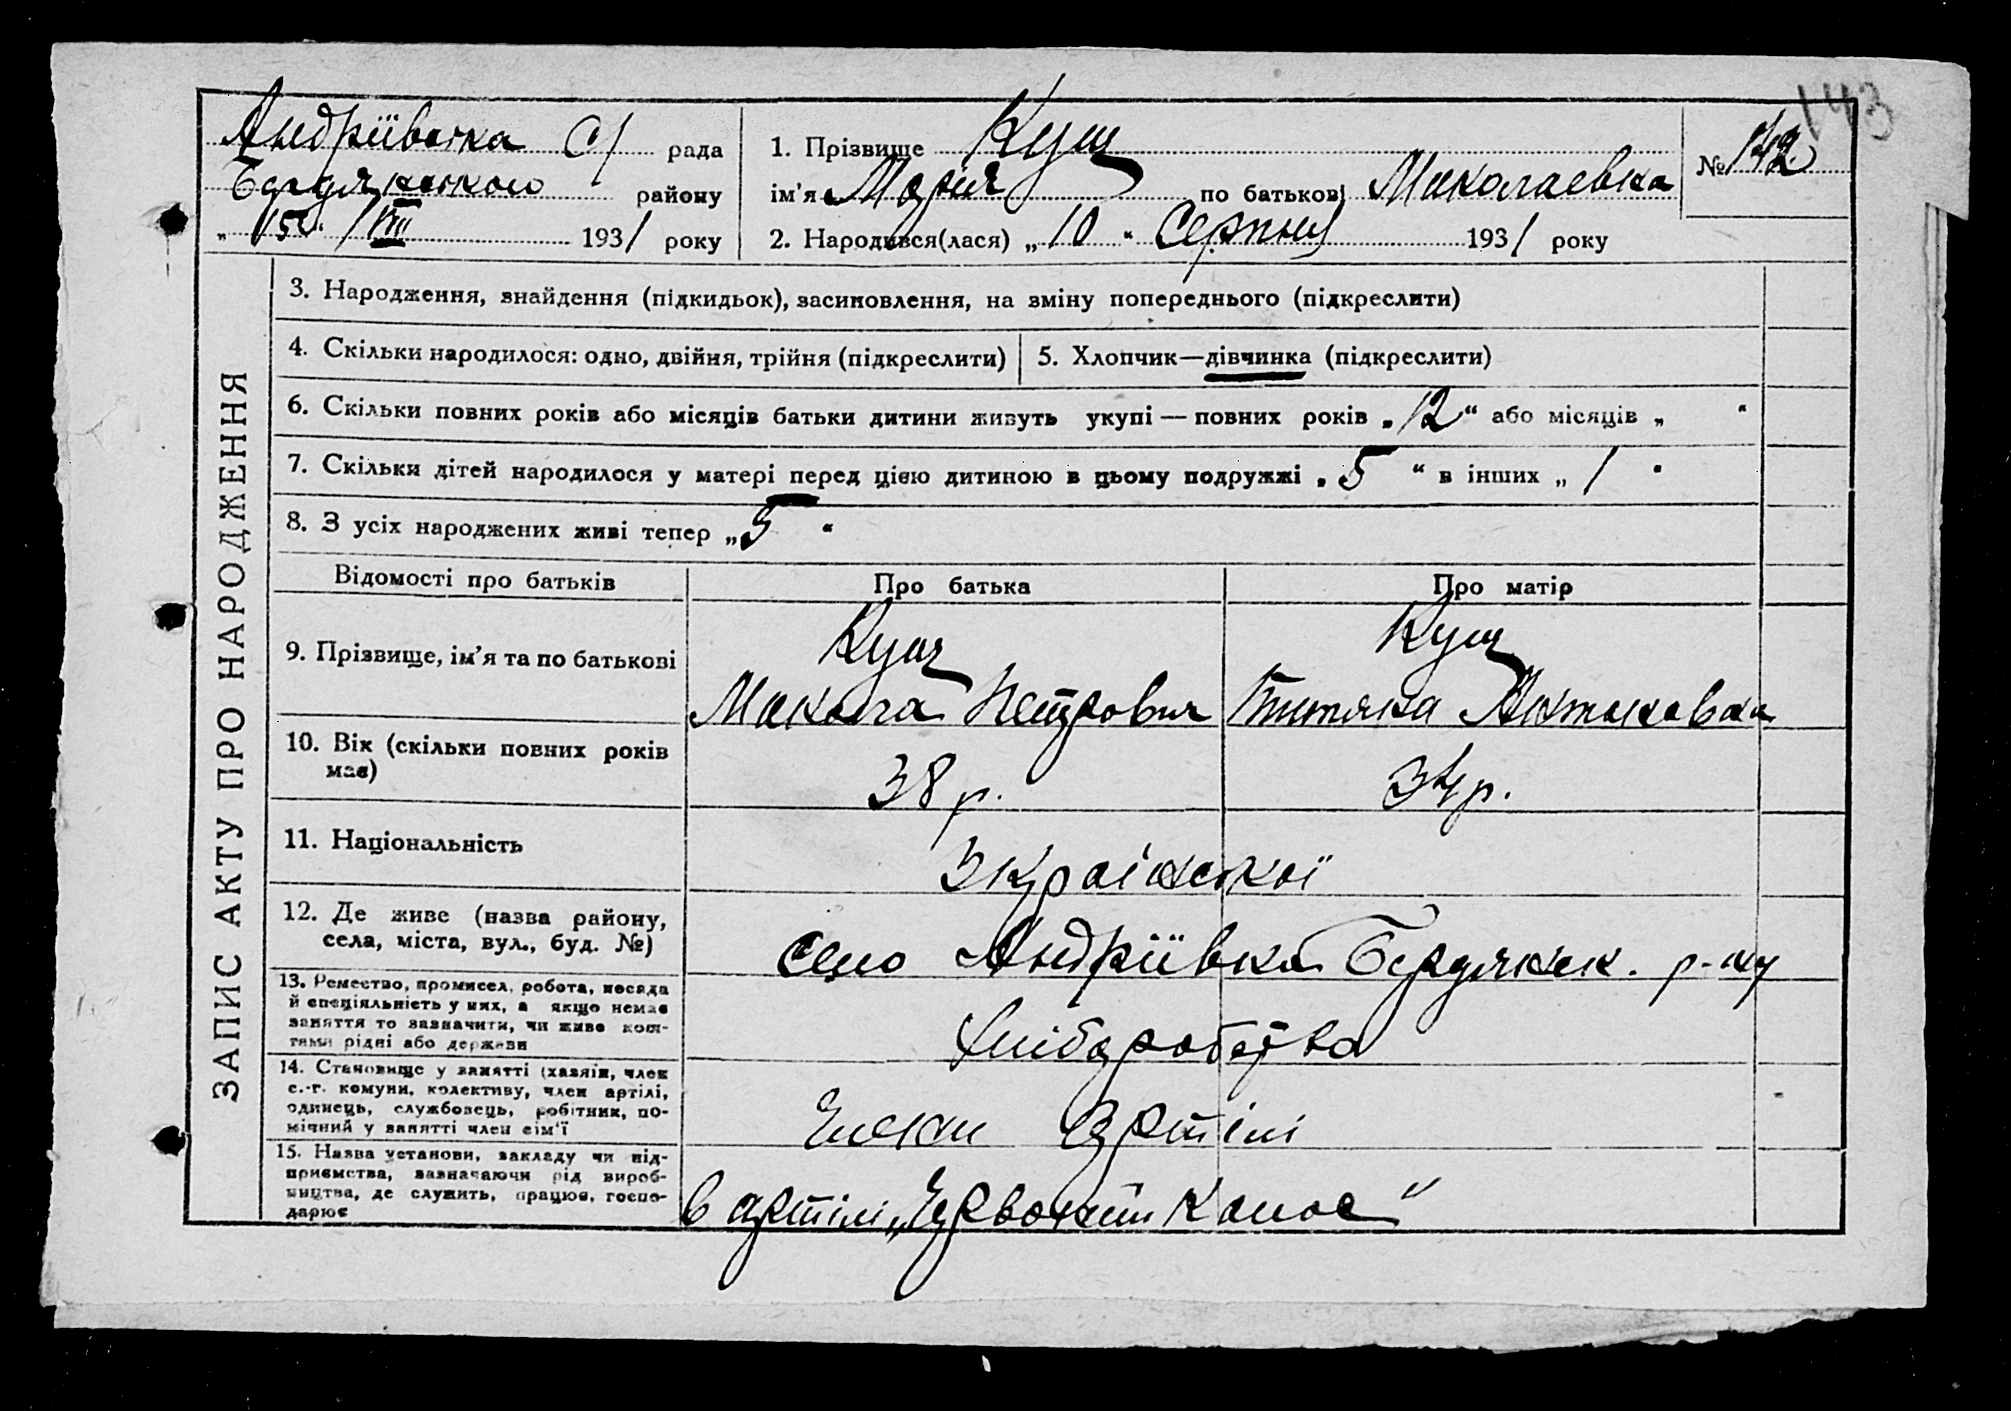 143
Андріівська с/ рада
Бердянського району
„15“ VIII 1931 року
1. Прізвище Кущ
ім'я Мария по батькові Миколаевна
№ 142
2. Народився(лася) „10“ Серпня 1931 року
ЗАПИС АКТУ ПРО НАРОДЖЕННЯ
3. Народження, знайдення (підкидьок), засиновлення, на зміну попереднього (підкреслити)
4. Скільки народилося: одно, двійня, трійня (підкреслити)
5. Хлопчик—дівчинка (підкреслити)
6. Скільки повних років або місяців батьки дитини живуть укупі — повних років „12“ або місяців „ “
7. Скільки дітей народилося у матері перед цією дитиною в цьому подружжі „5“ в інших „1“
8. З усіх народжених живі тепер „5“
Відомості про батьків
Про батька
Про матір
9. Прізвище, ім'я та по батькові
Кущ
Микола Петрович
Кущ
10. Вік (скільки повних років
має)
38 р.
34 р.
11. Національність
Української
12. Де живе (назва району,
села, міста, вул., буд. №)
село Андріівка Бердянськ. р-ну
13. Ремество, промисел, робота, посада
й спеціяльність у них, а якщо немає
заняття то зазначити, чи живе кош-
тами рідні або держави
Хліборобство
14. Становище у занятті (хазяїн, член
с.-г. комуни, колективу, член артілі,
одинець, службовець, робітник, по-
мічний у занятті член сім'ї
Члени Артілі
15. Назва установи, закладу чи під-
приємства, зазначаючи рід вироб-
ництва, де служить, працює, госпо-
дарює
в артілі „Червоний Колос“